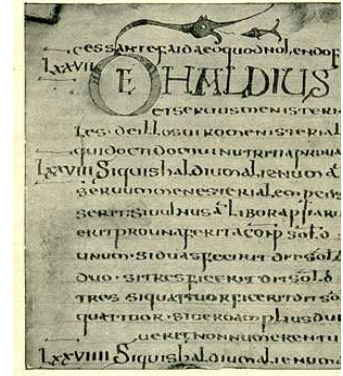 cessante faida eo quod nolendo
LXXVII DE HALDIUS
et seruus menisteri
les. de illos uiro menisterial
qui docti domui nutriti aproua
LXXVIII Siquis haldium alienum a
seruum menesterialem
serit. si uulnus libor
erit pro una ferita conp sol
unum. si duas fecerit det sol
duo. si tres fecerit det sol
tres si quattuor fecerit det so
quattuor. si uero amplius du
uerit non numerentu
LXXVIIII Siquis haldium alienum